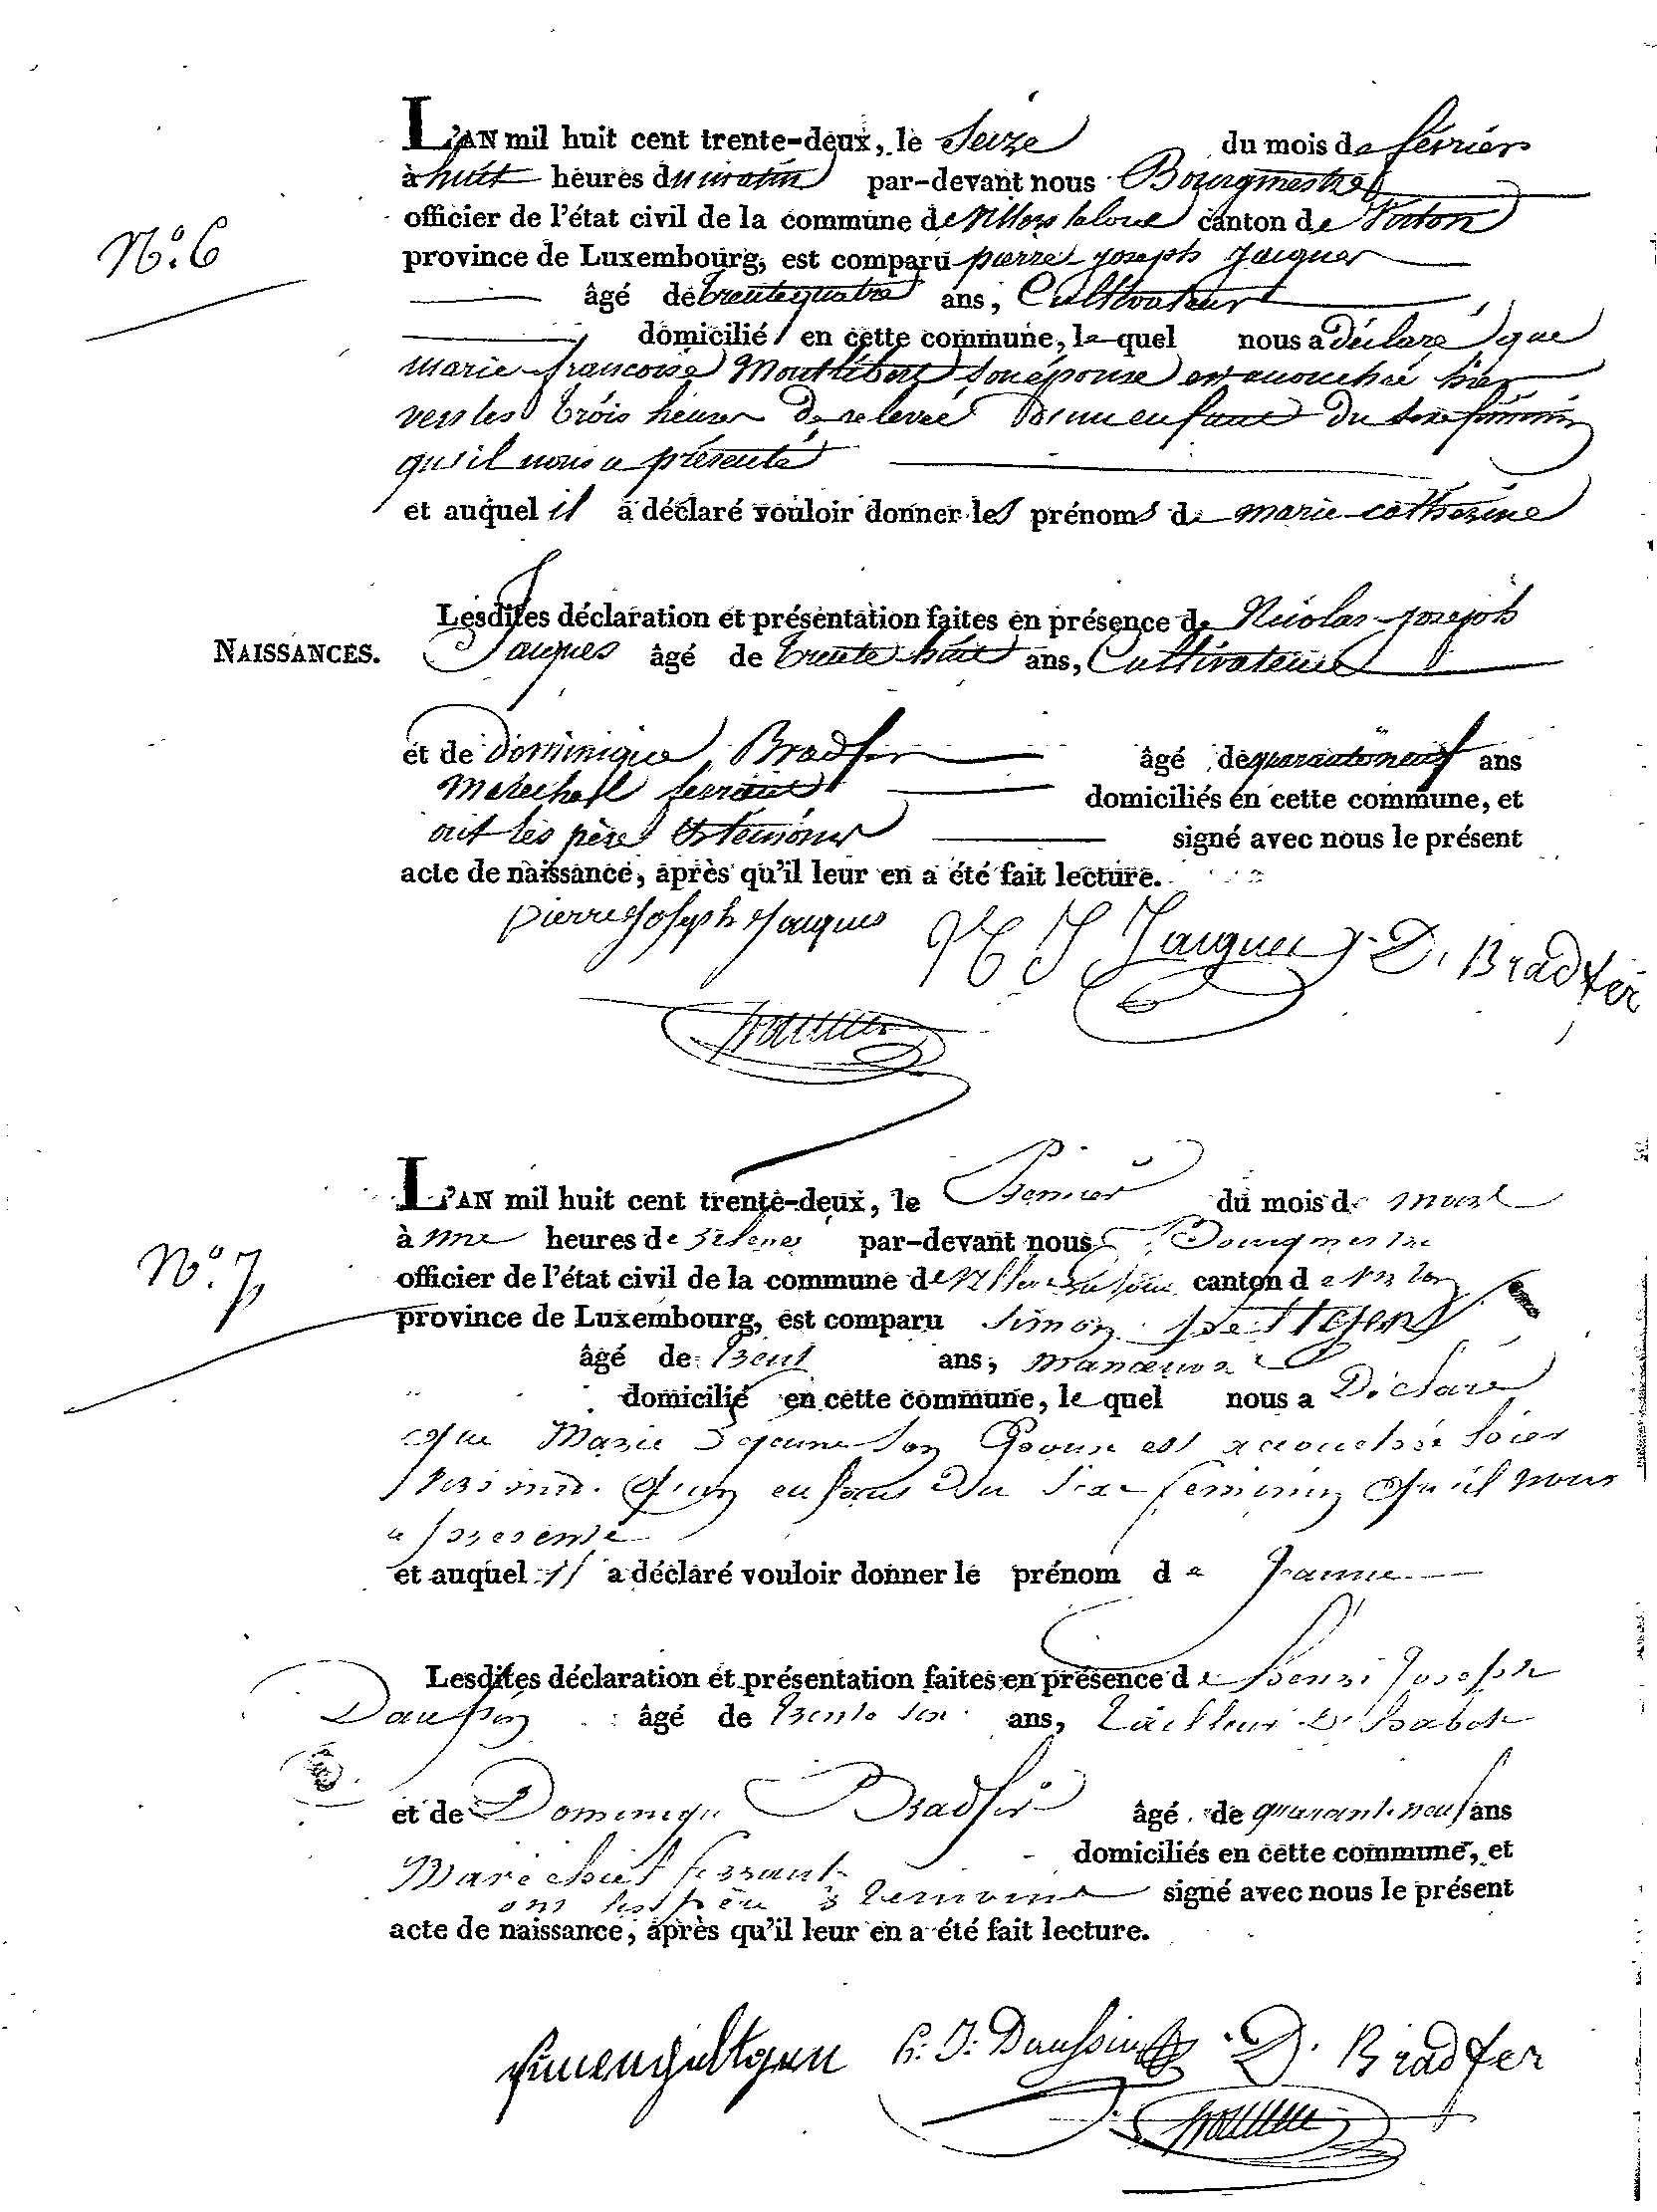 L'AN mil huit cent trente-deux, le Seize du mois de février
à huit heures du matin par-devant nous Bourgmestre
officier de l'état civil de la commune de Villers laloue canton de Virton
N.º 6
province de Luxembourg, est comparu pierre joseph Jacques
âgé de trente quatre ans, Cultivateur
domicilié en cette commune, le quel nous a déclaré que
marie françoise Montlibert son épouse est accouchée hier
vers les trois heures de relevée d'un enfant du sexe féminin
qu'il nous a présenté
et auquel il a déclaré vouloir donner les prénoms de marie catherine
Lesdites déclaration et présentation faites en présence de Nicolas joseph
NAISSANCES.
Jacques âgé de trente huit ans, Cultivateur
et de Dominique Bradfer âgé de quarante neuf ans
marechal ferrant domiciliés en cette commune, et
ont les père et témoins signé avec nous le présent
acte de naissance, après qu'il leur en a été fait lecture.
pierre Joseph Jacques N J Jacques D. Bradfer
L'AN mil huit cent trente-deux, le Premier du mois de mars
à une heures de relevée par-devant nous Bourgmestre
N.º 7
officier de l'état civil de la commune de Villers laloue canton de virton
province de Luxembourg, est comparu Simon
âgé de trente ans, manœuvre
domicilié en cette commune, le quel nous a Déclaré
que Marie son Epouse est accouchée hier
d'un enfant du sexe feminin qu'il nous
a presenté
et auquel il a déclaré vouloir donner le prénom de Jeanne
Lesdites déclaration et présentation faites en présence de henri Joseph
Daussin âgé de trente six ans, tailleur d'habits
et de Dominique Bradfer âgé de quarante neuf ans
Maréchal ferrant domiciliés en cette commune, et
ont les père et temoins signé avec nous le présent
acte de naissance, après qu'il leur en a été fait lecture.
h. J. Daussin D. Bradfer